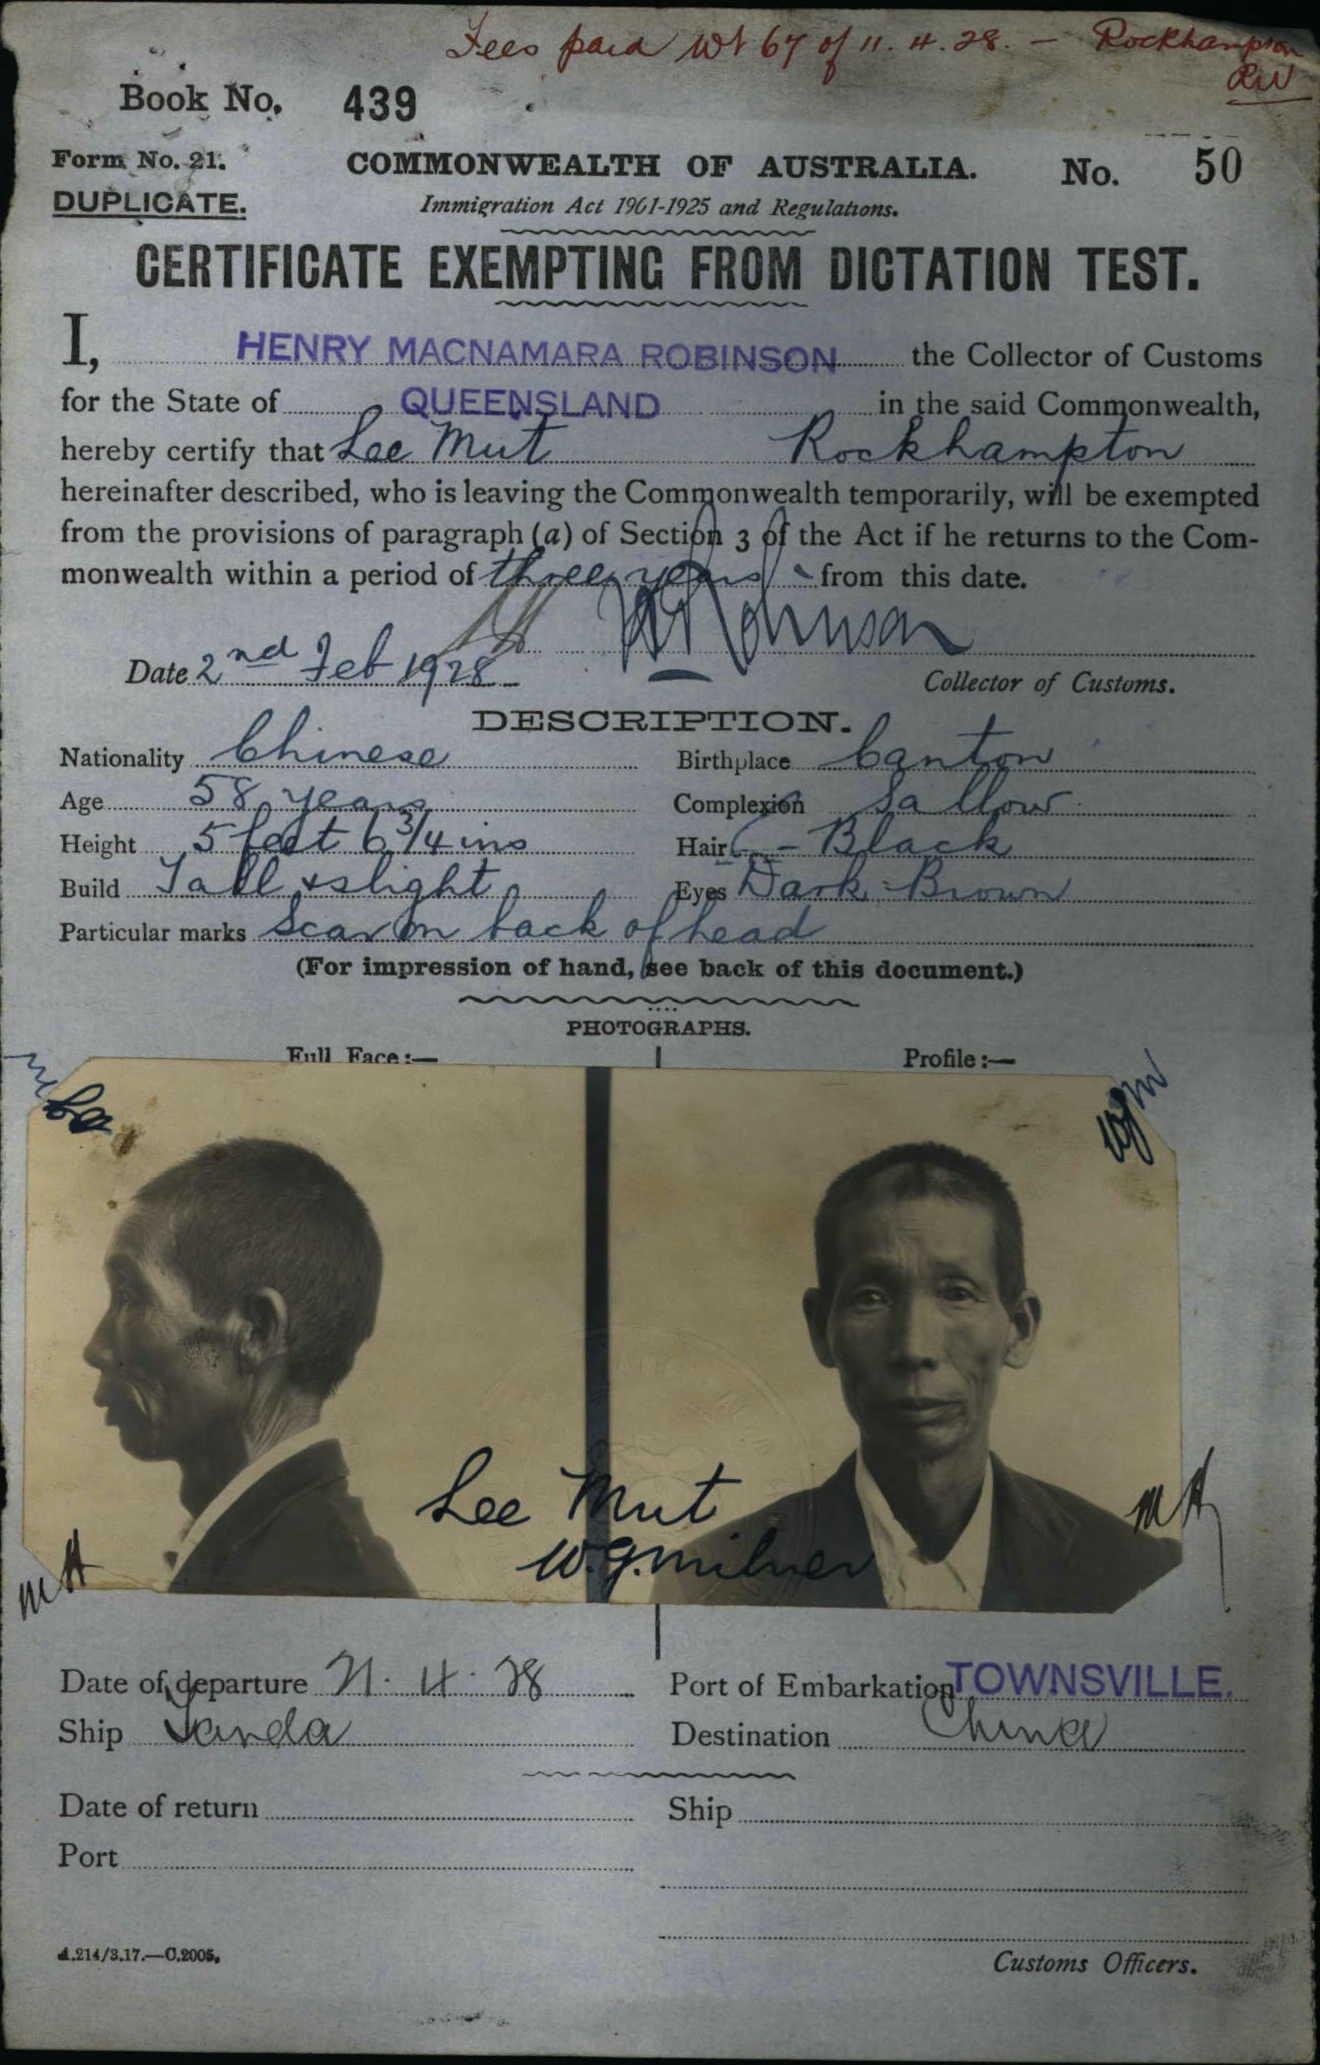 Fees paid Wt 67 of 11.4.28. — Rockhampton
RW
Book No. 439
Form No. 21. COMMONWEALTH OF AUSTRALIA. No. 50
DUPLICATE. Immigration Act 1901-1925 and Regulations.
CERTIFICATE EXEMPTING FROM DICTATION TEST.
I, HENRY MACNAMARA ROBINSON the Collector of Customs
for the State of QUEENSLAND in the said Commonwealth,
hereby certify that Lee Mut Rockhampton
hereinafter described, who is leaving the Commonwealth temporarily, will be exempted
from the provisions of paragraph (a) of Section 3 of the Act if he returns to the Com-
monwealth within a period of three years from this date.
Robinson
Date 2nd Feb 1928 Collector of Customs.
DESCRIPTION.
Nationality Chinese Birthplace Canton
Age 58 years Complexion Sallow
Height 5 feet 6 3/4 ins Hair - Black
Build Tall & slight Eyes Dark-Brown
Particular marks Scar on back of head
(For impression of hand, see back of this document.)
PHOTOGRAPHS.
Full Face:— Profile:—
WJM
Lee Mut
W.G.Milner
MH MH
Date of departure 21.4.28 Port of Embarkation TOWNSVILLE.
Ship Tanda Destination China
Date of return Ship
Port
A.214/3.17.—C.2005. Customs Officers.